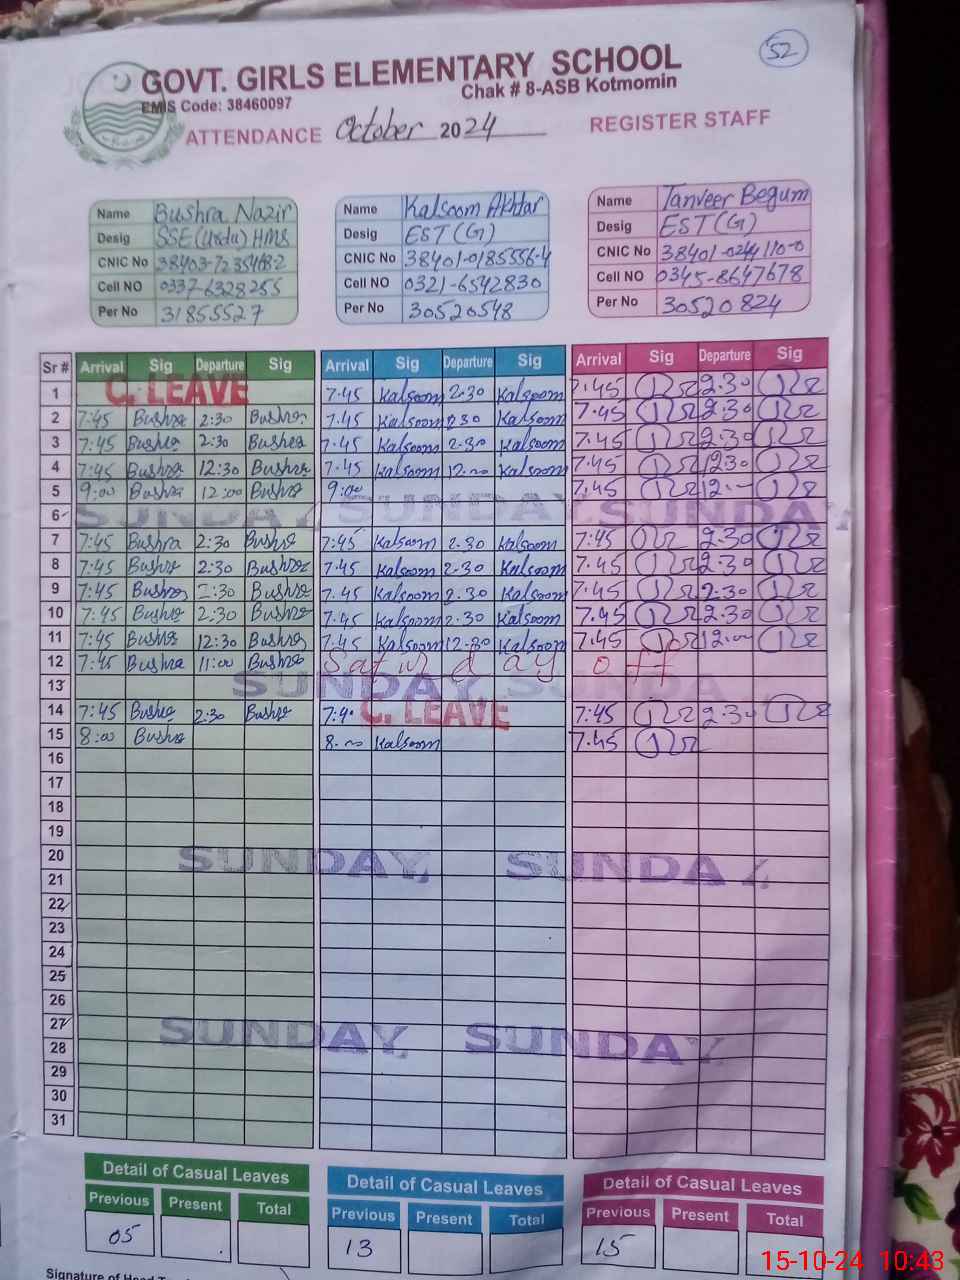 52
GOVT. GIRLS ELEMENTARY SCHOOL
Chak # 8-ASB Kotmomin
EMIS Code: 38460097
ATTENDANCE October 2024 REGISTER STAFF
Name Bushra Nazir
Desig SSE(Urdu) HMS
CNIC No
Cell NO 0337-6328255
Per No 31855527
Name Kalsoom Akhtar
Desig EST(G)
CNIC No 38401-0185556-4
Cell NO 0321-6542830
Per No 30520548
Name Tanveer Begum
Desig EST(G)
CNIC No 38401-0244110-0
Cell NO 0345-8647678
Per No 30520824
Sr # Arrival Sig Departure Sig Arrival Sig Departure Sig Arrival Sig Departure Sig
1 C. LEAVE 7:45 Kalsoom 2:30 Kalsoom 7:45 2:30
2 7:45 Bushra 2:30 Bushra 7:45 Kalsoom 2:30 Kalsoom 7:45 2:30
3 7:45 Bushra 2:30 Bushra 7:45 Kalsoom 2:30 Kalsoom 7:45 2:30
4 7:45 Bushra 12:30 Bushra 7:45 Kalsoom 12:00 Kalsoom 7:45 12:30
5 9:00 Bushra 12:00 Bushra 9:00 7:45 12:00
6 SUNDAY SUNDAY, SUNDAY
7 7:45 Bushra 2:30 Bushra 7:45 Kalsoom 2:30 Kalsoom 7:45 2:30
8 7:45 Bushra 2:30 Bushra 7:45 Kalsoom 2:30 Kalsoom 7:45 2:30
9 7:45 Bushra 2:30 Bushra 7:45 Kalsoom 2:30 Kalsoom 7:45 2:30
10 7:45 Bushra 2:30 Bushra 7:45 Kalsoom 2:30 Kalsoom 7:45 2:30
11 7:45 Bushra 12:30 Bushra 7:45 Kalsoom 12:30 Kalsoom 7:45 12:00
12 7:45 Bushra 11:00 Bushra Saturday off
13 SUNDAY, SUNDA
14 7:45 Bushra 2:30 Bushra 7:4 C. LEAVE 7:45 2:30
15 8:00 Bushra 8:00 Kalsoom 7:45
16
17
18
19
20 SUNDAY, SUNDA
21
22
23
24
25
26
27 SUNDAY, SUNDAY
28
29
30
31
Detail of Casual Leaves
Previous Present Total
05
Detail of Casual Leaves
Previous Present Total
13
Detail of Casual Leaves
Previous Present Total
15
Signature of Head
15-10-24 10:43